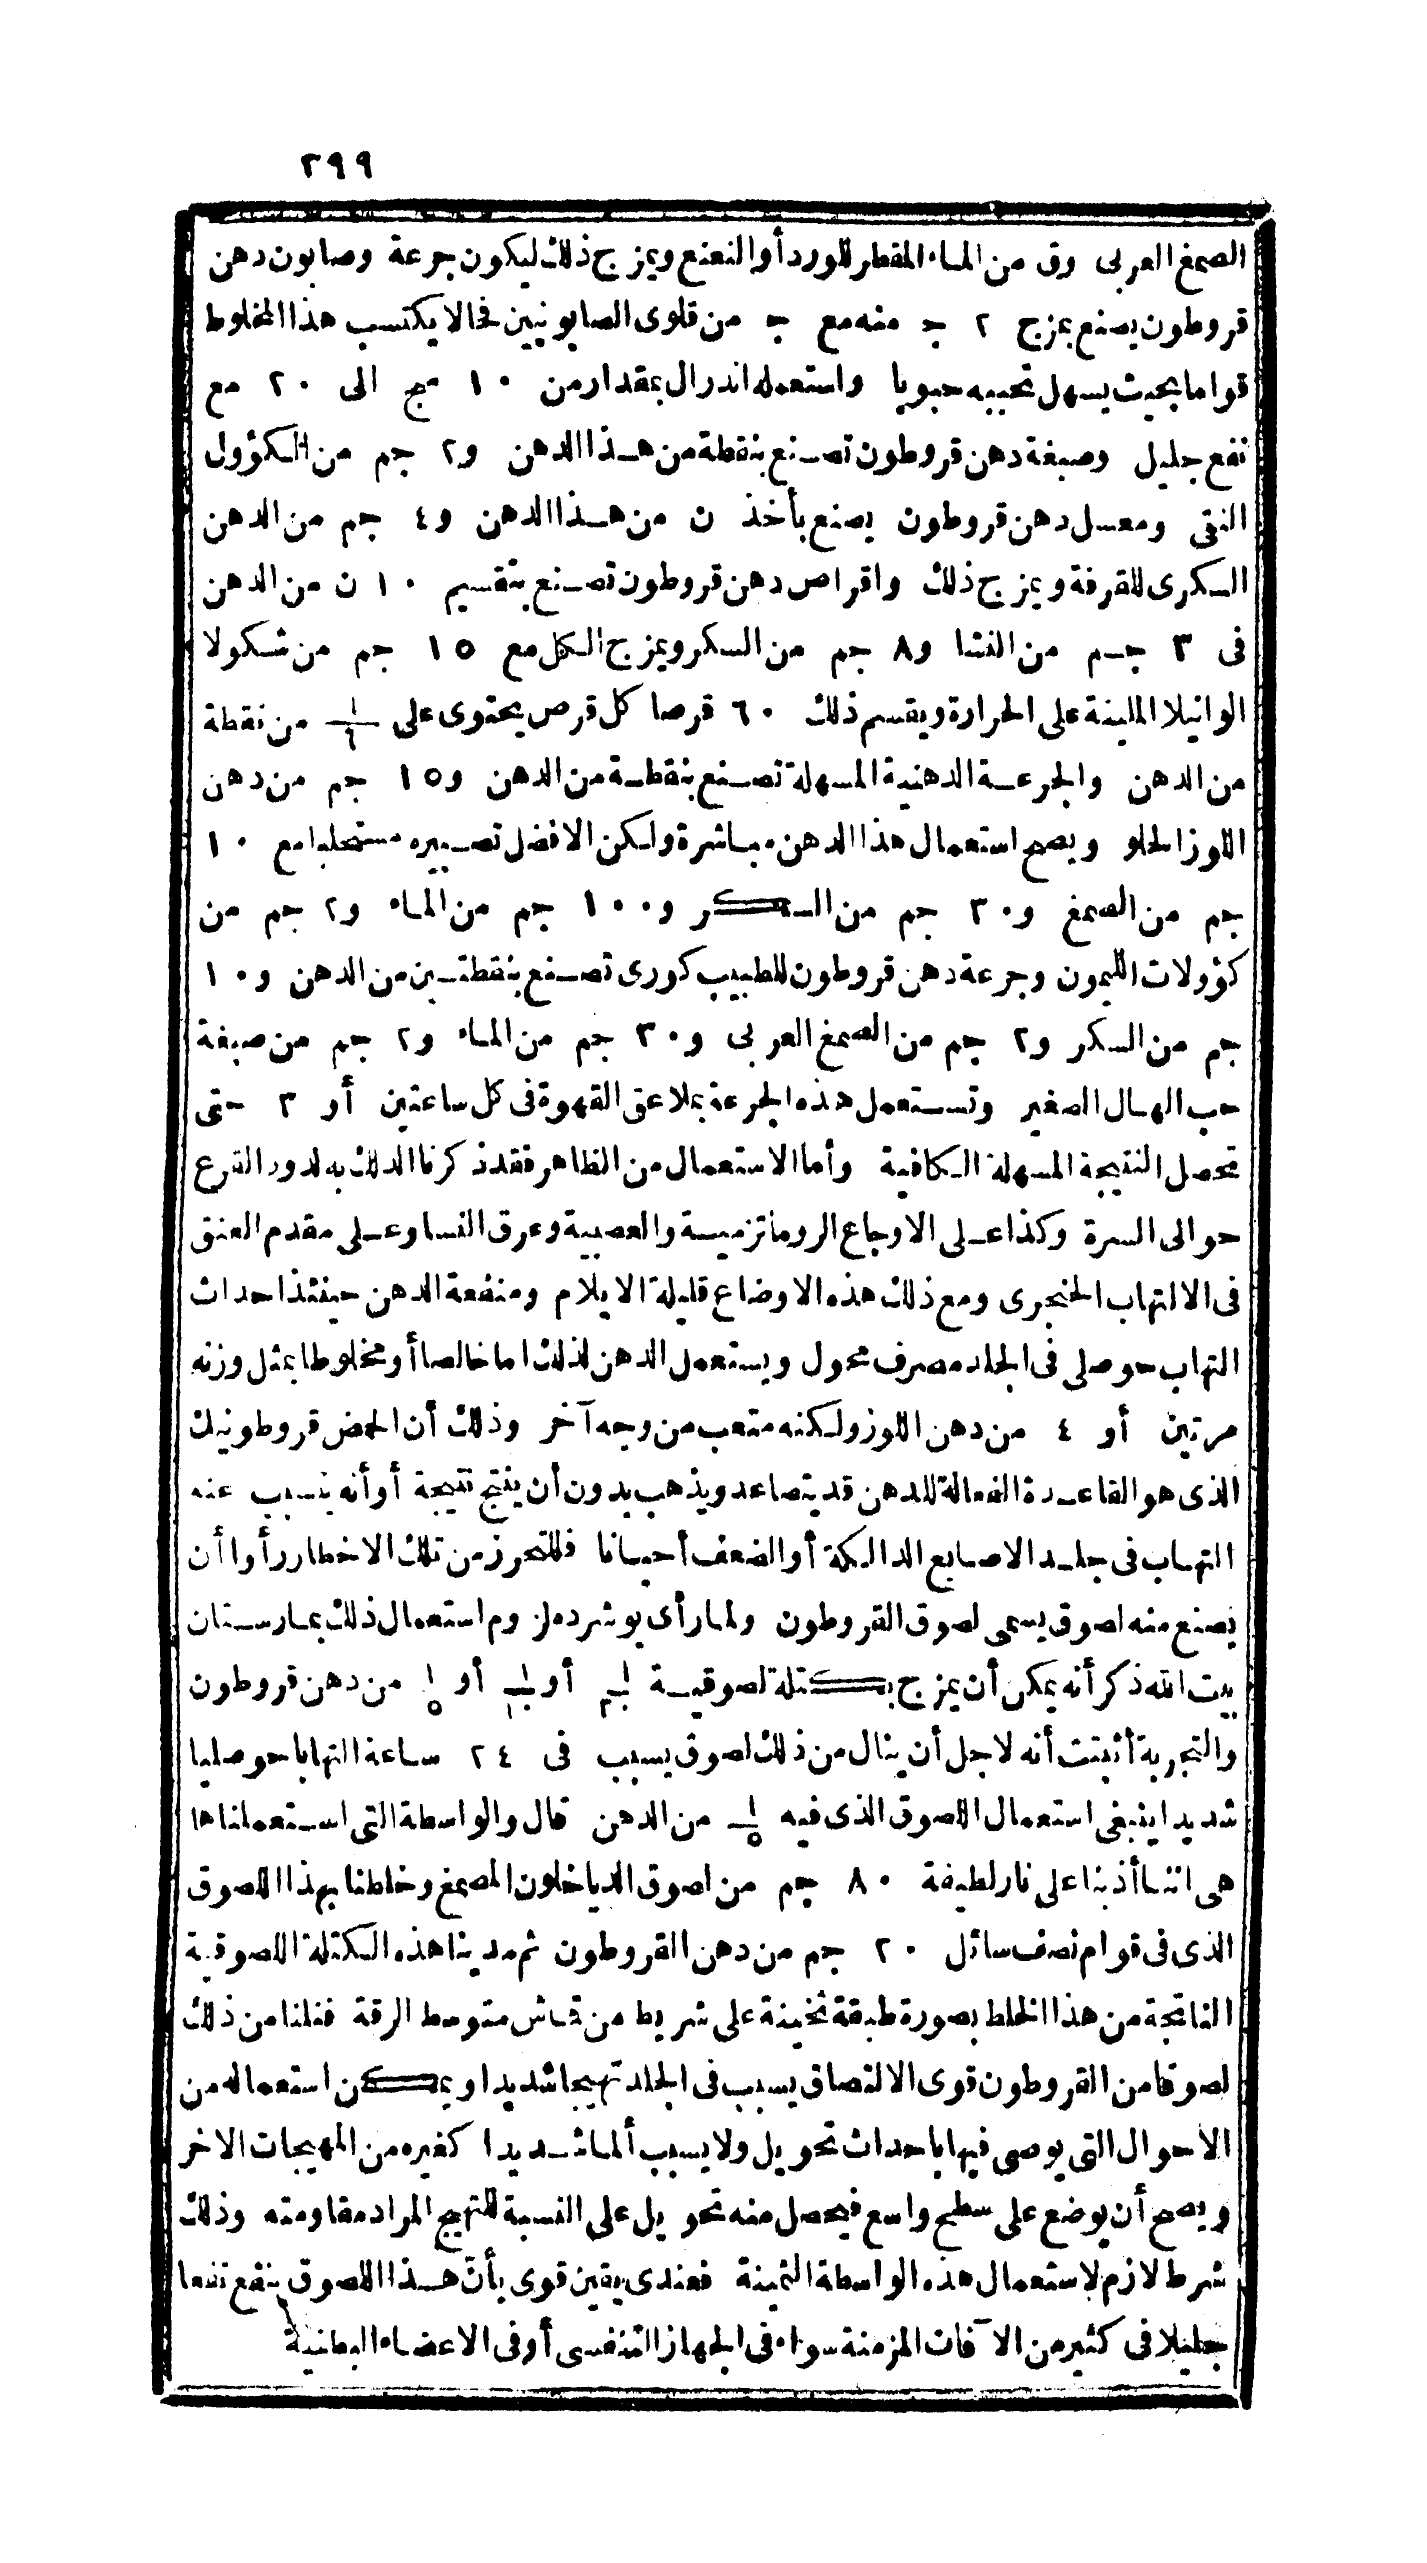 ٢٩٩
الصمغ العربى وق من الماء المقطر للورد أو النعنع ويمزج ذلك ليكون جرعة وصابون دهن
قروطون يصنع بمزج ٢ ج منه مع ج من قلوى الصابونيين فحالا يكتسب هذا المخلوط
قواما بحيث يسهل تحبيبه حبوبا واستعمله اندرال بمقدار من ١٠ مج الى ٢٠ مع
نفع جليل وصبغة دهن قروطون تصنع بنقطة من هذا الدهن و٢ جم من الكؤول
النقى ومعسل دهن قروطون يصنع بأخذ ن من هذا الدهن و٤ جم من الدهن
السكرى للقرفة ويمزج ذلك واقراص دهن قروطون تصنع بتقسيم ١٠ ن من الدهن
فى ٣ جم من النشا و٨ جم من السكر ويمزج الكل مع ١٥ جم من شكولا
الوانيلا الملينة على الحرارة ويقسم ذلك ٦٠ قرصا كل قرص يحتوى على ١/٦ من نقطة
من الدهن والجرعة الدهنية المسهلة تصنع بنقطة من الدهن و١٥ جم من دهن
اللوز الحلو ويصح استعمال هذا الدهن مباشرة ولكن الافضل تصييره مستحلبا مع ١٠
جم من الصمغ و٣٠ جم من السكر و١٠٠ جم من الماء و٢ جم من
كؤولات الليمون وجرعة دهن قروطون للطبيب كورى تصنع بنقطتين من الدهن و١٠
جم من السكر و٢ جم من الصمغ العربى و٣٠ جم من الماء و٢ جم من صبغة
حب الهال الصغير وتستعمل هذه الجرعة بملاعق القهوة فى كل ساعتين أو ٣ حتى
تحصل النتيجة المسهلة الكافية وأما الاستعمال من الظاهر فقد ذكرنا الدلك به لدود القرع
حوالى السرة وكذا على الاوجاع الروماتزمية والعصبية وعرق النسا وعلى مقدم العنق
فى الالتهاب الخنجرى ومع ذلك هذه الاوضاع قليلة الايلام ومنفعة الدهن حينئذ احداث
التهاب حوصلى فى الجلد مصرف محول ويستعمل الدهن لذلك اما خالصا أو مخلوطا بمثل وزنه
مرتين أو ٤ من دهن اللوز ولكنه متعب من وجه آخر وذلك أن الحمض قروطونيك
الذى هو القاعدة الفعالة للدهن قد يتصاعد ويذهب بدون أن ينتج نتيجة أو أنه يتسبب عنه
التهاب فى جلد الاصابع الدالكة أو الضعف أحيانا فللتحرز من تلك الاخطار رأوا أن
يصنع منه لصوق يسمى لصوق القروطون ولما رأى بوشرده لزوم استعمال ذلك بمارستان
بيت الله ذكر أنه يمكن أن يمزج بكتلة لصوقية ١/٣ أو ١/٤ أو ١/٥ من دهن قروطون
والتجربة أثبتت أنه لاجل أن ينال من ذلك لصوق يسبب فى ٢٤ ساعة التهابا حوصليا
شديدا ينبغى استعمال اللصوق الذى فيه ١/٥ من الدهن قال والواسطة التى استعملناها
هى اننا أذبنا على نار لطيفة ٨٠ جم من لصوق الدياخلون المصمغ وخلطنا بهذا اللصوق
الذى فى قوام نصف سائل ٢٠ جم من دهن القروطون ثم مدينا هذه الكتلة اللصوقية
الناتجة من هذا الخلط بصورة طبقة ثخينة على شريط من قماش متوسط الرقة فنلنا من ذلك
لصوقا من القروطون قوى الالتصاق يسبب فى الجلد تهيجا شديدا ويمكن استعماله من
الاحوال التى يوصى فيها باحداث تحويل ولا يسبب ألما شديدا كغيره من المهيجات الاخر
ويصح أن يوضع على سطح واسع فيحصل منه تحويل على النسبة للتهيج المراد مقاومته وذلك
شرط لازم لاستعمال هذه الواسطة الثمينة فعندى يقين قوى بأن هذا اللصوق ينفع نفعا
جليلا فى كثير من الآفات المزمنة سواء فى الجهاز التنفسى أو فى الاعضاء البطنية